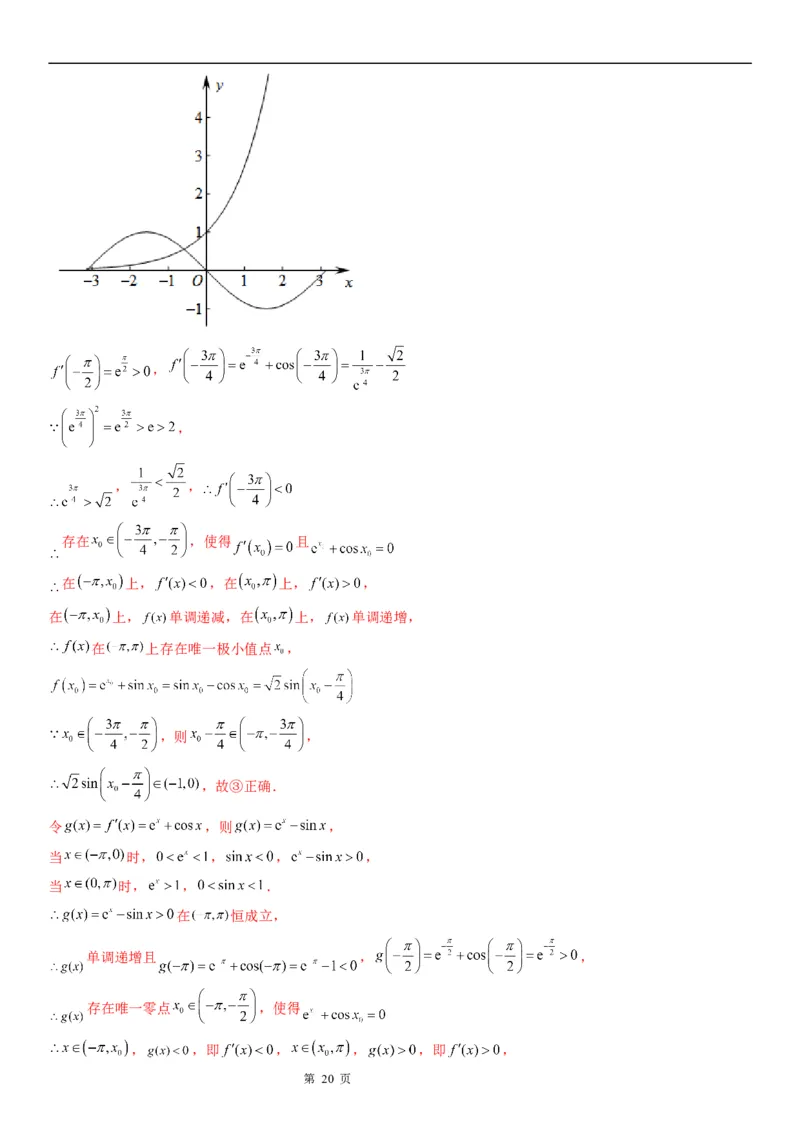 y
4
3
2
1
-3 -2 -1 O 1 2 3 x
-1
f′(-π/2)=e^{π/2}>0，f′(-3π/4)=e^{-3π/4}+cos(-3π/4)=1/e^{3π/4}-√2/2
∵(e^{3π/4})²=e^{3π/2}>e>2，
∴e^{3π/4}>√2，1/e^{3π/4}<√2/2，∴f′(-3π/4)<0
∴存在x₀∈(-3π/4,-π/2)，使得f′(x₀)=0且e^{x₀}+cos x₀=0
∴在(-π,x₀)上，f′(x)<0，在(x₀,π)上，f′(x)>0，
在(-π,x₀)上，f(x)单调递减，在(x₀,π)上，f(x)单调递增，
∴f(x)在(-π,π)上存在唯一极小值点x₀，
f(x₀)=e^{x₀}+sin x₀=sin x₀-cos x₀=√2sin(x₀-π/4)
∵x₀∈(-3π/4,-π/2)，则x₀-π/4∈(-π,-3π/4)，
∴√2sin(x₀-π/4)∈(-1,0)，故③正确.
令g(x)=f′(x)=e^x+cos x，则g(x)=e^x-sin x，
当x∈(-π,0)时，0<e^x<1，sin x<0，e^x-sin x>0，
当x∈(0,π)时，e^x>1，0<sin x<1.
∴g(x)=e^x-sin x>0在(-π,π)恒成立，
∴g(x)单调递增且g(-π)=e^{-π}+cos(-π)=e^{-π}-1<0，g(-π/2)=e^{-π/2}+cos(-π/2)=e^{-π/2}>0，
∴g(x)存在唯一零点x₀∈(-π,-π/2)，使得e^{x}+cos x₀=0
∴x∈(-π,x₀)，g(x)<0，即f′(x)<0，x∈(x₀,π)，g(x)>0，即f′(x)>0，
第 20 页